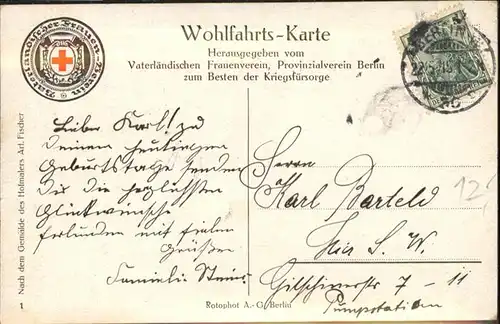 Vaterländischer Frauen-Verein
Wohlfahrts-Karte
Herausgegeben vom
Vaterländischen Frauenverein, Provinzialverein Berlin
zum Besten der Kriegsfürsorge
BERLIN
Lieber Karl! zu
Deinem heutigen
Geburtstage senden
Dir die herzlichsten
Glückwünsche
verbunden mit vielen
Grüßen
Familie
Herrn
Karl Barteld
Hier S. W.
Gitschinerstr 7 - 11
Pumpstation
12
Nach dem Gemälde des Hofmalers Art. Fischer
1
Rotophot A.-G. Berlin